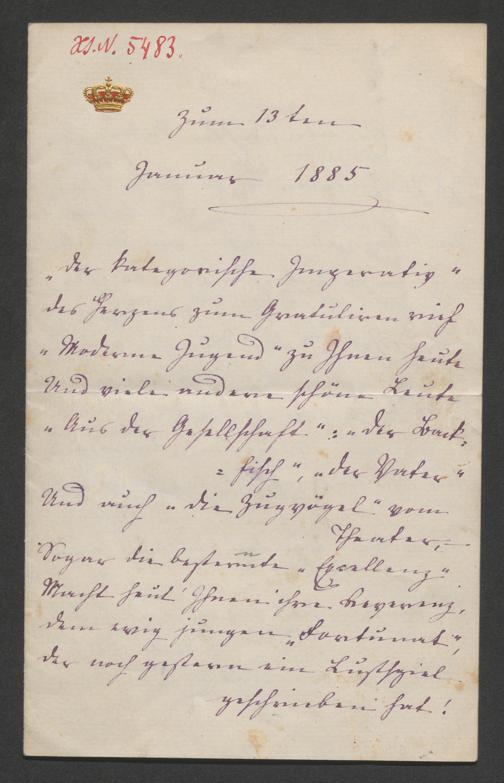 H.I.N. 5483.
Zum 13ten
Januar 1885
„Der kategorische Imperativ“
des Herzens zum Gratuliren rief
„Moderne Jugend“ zu Ihnen heute
Und viele andere schöne Leute
„Aus der Gesellschaft“: „der Back-
=fisch“, „der Vater“
Und auch „die Zugvögel“ vom
Theater,
Sogar die besternte „Excellenz“
Macht heut' Ihnen ihre Reverenz,
dem ewig jungen „Fortunat“,
der noch gestern ein Lustspiel
geschrieben hat!